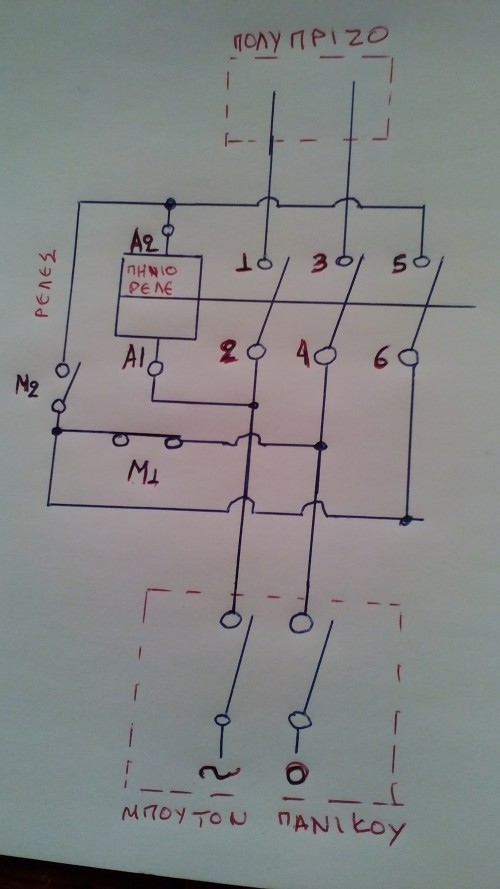 ΠΟΛΥΠΡΙΖΟ
ΡΕΛΕΣ
A2
ΠΗΝΙΟ
ΡΕΛΕ
1 3 5
A1
2 4 6
M2
M1
~ 0
ΜΠΟΥΤΟΝ ΠΑΝΙΚΟΥ